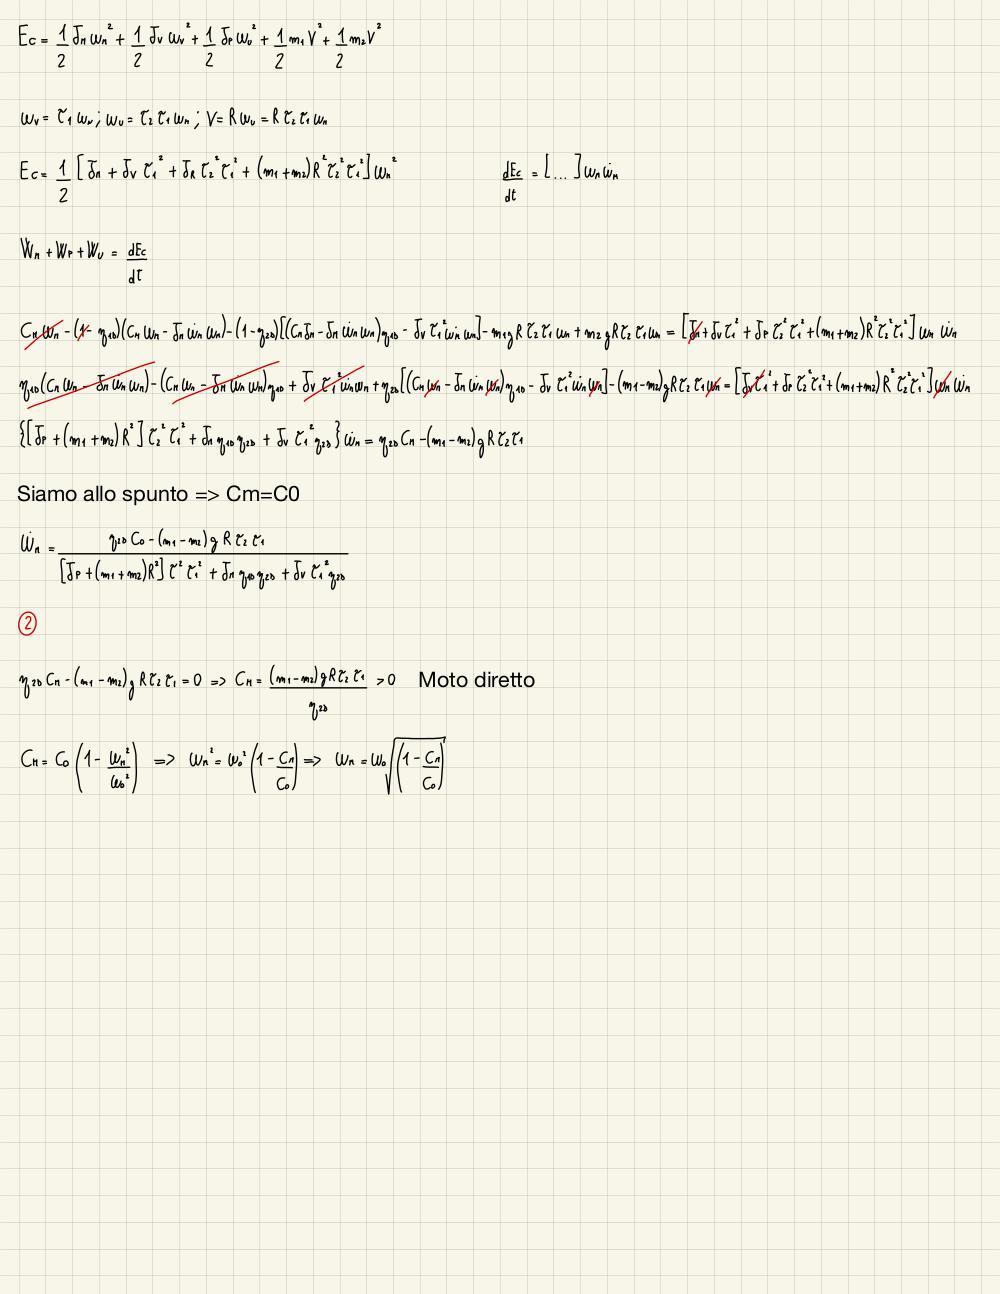 Ec = 1/2 Jm ωm² + 1/2 Jv ωv² + 1/2 Jp ωu² + 1/2 m1 V² + 1/2 m2 V²
ωv = τ1 ωm ; ωu = τ2 τ1 ωm ; V = R ωu = R τ2 τ1 ωm
Ec = 1/2 [Jm + Jv τ1² + JR τ2² τ1² + (m1 + m2) R² τ2² τ1²] ωm² dEc/dt = [...] ωm ω̇m
Wm + Wp + Wu = dEc/dt
CM ωm - (1 - η1D)(CM ωm - Jm ω̇m ωm) - (1 - η2D)[(Cm Jm - Jm ω̇m ωm) η1D - Jv τ1² ω̇m ωm] - m1 g R τ2 τ1 ωm + m2 g R τ2 τ1 ωm = [Jm + Jv τ1² + Jp τ2² τ1² + (m1 + m2) R² τ2² τ1²] ωm ω̇m
η1D (Cm ωm - Jm ω̇m ωm) - (CM ωm - Jm ω̇m ωm) η1D + Jv τ1² ω̇m ωm + η2D [(CM ωm - Jm ω̇m ωm) η1D - Jv τ1² ω̇m ωm] - (m1 - m2) g R τ2 τ1 ωm = [Jv τ1² + Jp τ2² τ1² + (m1 + m2) R² τ2² τ1²] ωm ω̇m
{[Jp + (m1 + m2) R²] τ2² τ1² + Jm η1D η2D + Jv τ1² η2D} ω̇m = η2D CM - (m1 - m2) g R τ2 τ1
Siamo allo spunto => Cm=C0
ω̇m = η2D C0 - (m1 - m2) g R τ2 τ1 / [Jp + (m1 + m2) R²] τ² τ1² + Jm η1D η2D + Jv τ1² η2D
2
η2D Cm - (m1 - m2) g R τ2 τ1 = 0 => CM = (m1 - m2) g R τ2 τ1 / η2D > 0 Moto diretto
CM = C0 (1 - ωm²/ω0²) => ωm² = ω0² (1 - Cm/C0) => ωm = ω0 √(1 - Cm/C0)